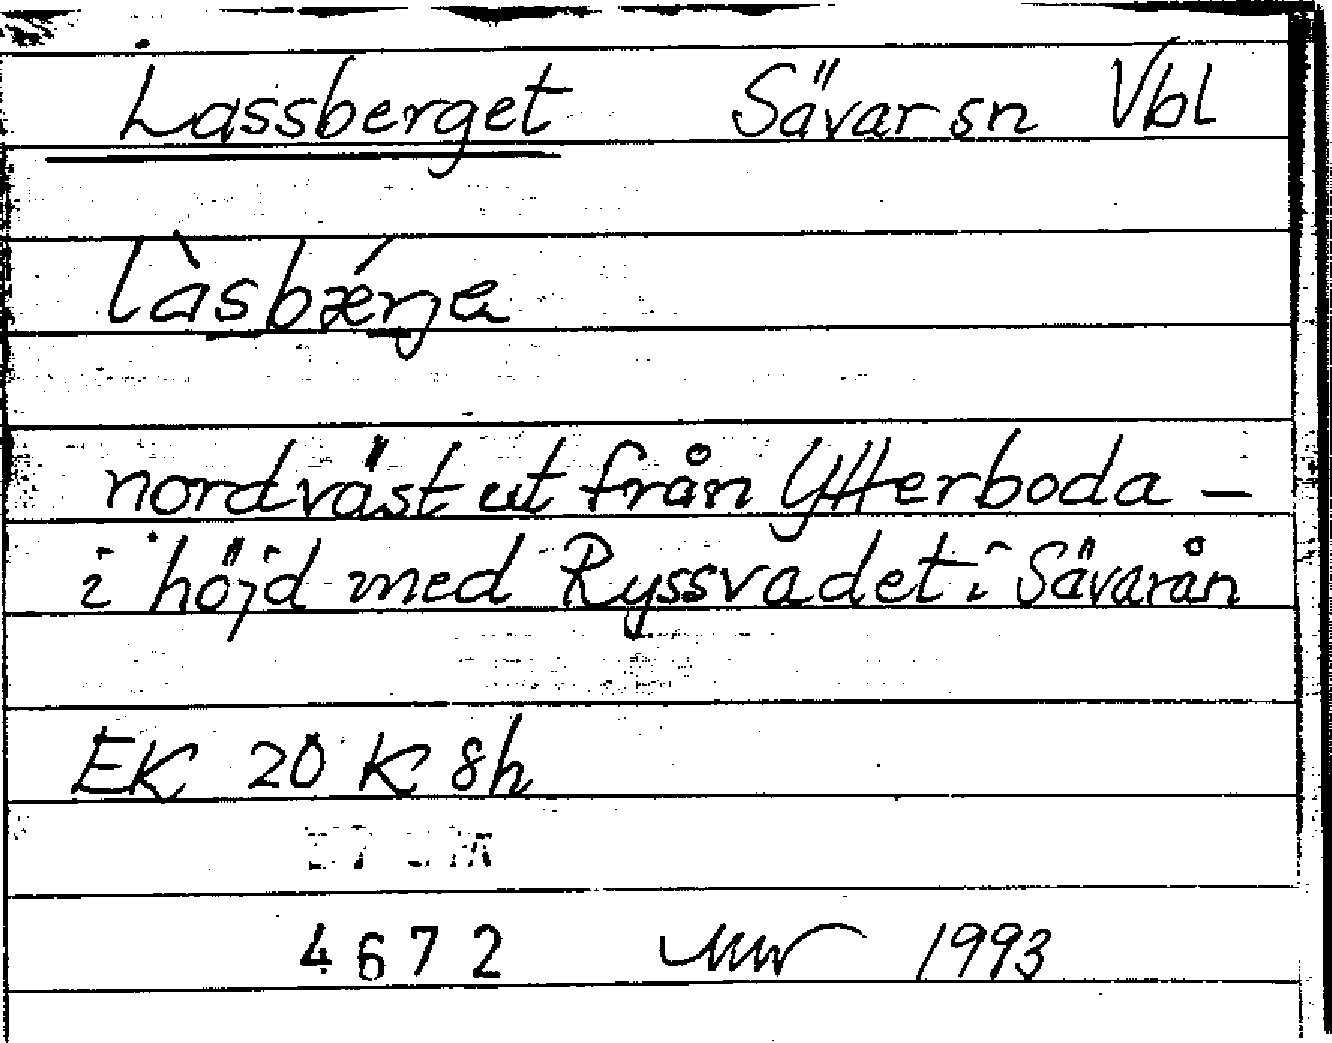 Lassberget Sävar sn Vbl
nordväst ut från Ytterboda –
i höjd med Ryssvadet i Sävarån
EK 20 K 8h
4672 1993